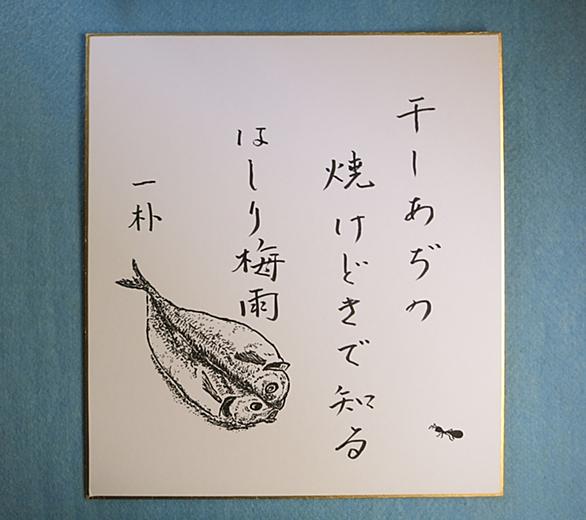 干しあぢの
焼けどきで知る
はしり梅雨
一朴